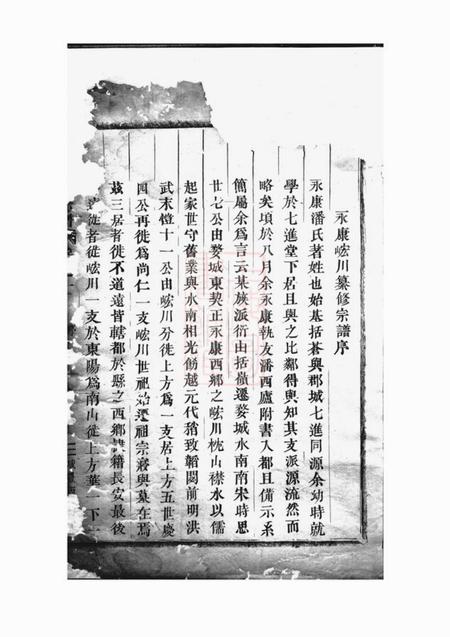 永康峵川纂修宗譜序
永康潘氏著姓也始基括蒼與郡城七進同源余幼時就
學於七進堂下居且與之比鄰得與知其支派源流然而
略矣頃於八月余永康執友潘西廬附書入都且備示系
簡屬余為言云某族派衍由括嶺遷婺城水南南宋時思
廿七公由婺城東契正永康西鄉之峵川枕山襟水以儒
起家世守舊業與水南相光飭越元代稍致韜闕前明洪
武末愷十一公由峵川分徙上方為一支居上方五世慶
四公再徙為尚仁一支峵川世祖始遷祖宗祿與墓在焉
茲三居者徙不道遠皆轄都於縣之西鄉隸籍長安最後
徙者從峵川一支於東陽為南山徙上方華一下